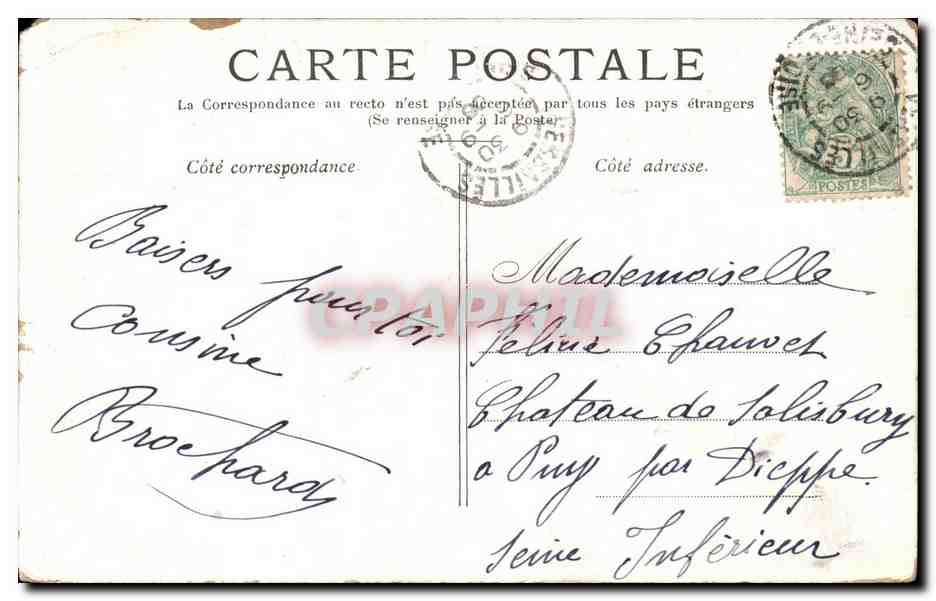 CARTE POSTALE
La Correspondance au recto n'est pas acceptée par tous les pays étrangers
(Se renseigner à la Poste)
Côté correspondance.
Côté adresse.
VERSAILLES
POSTES
Baisers pour toi
cousine
Brochard
CPAPHIL
Mademoiselle
Féline Chauvet
Chateau de Salisbury
a Puy par Dieppe
Seine Inférieur